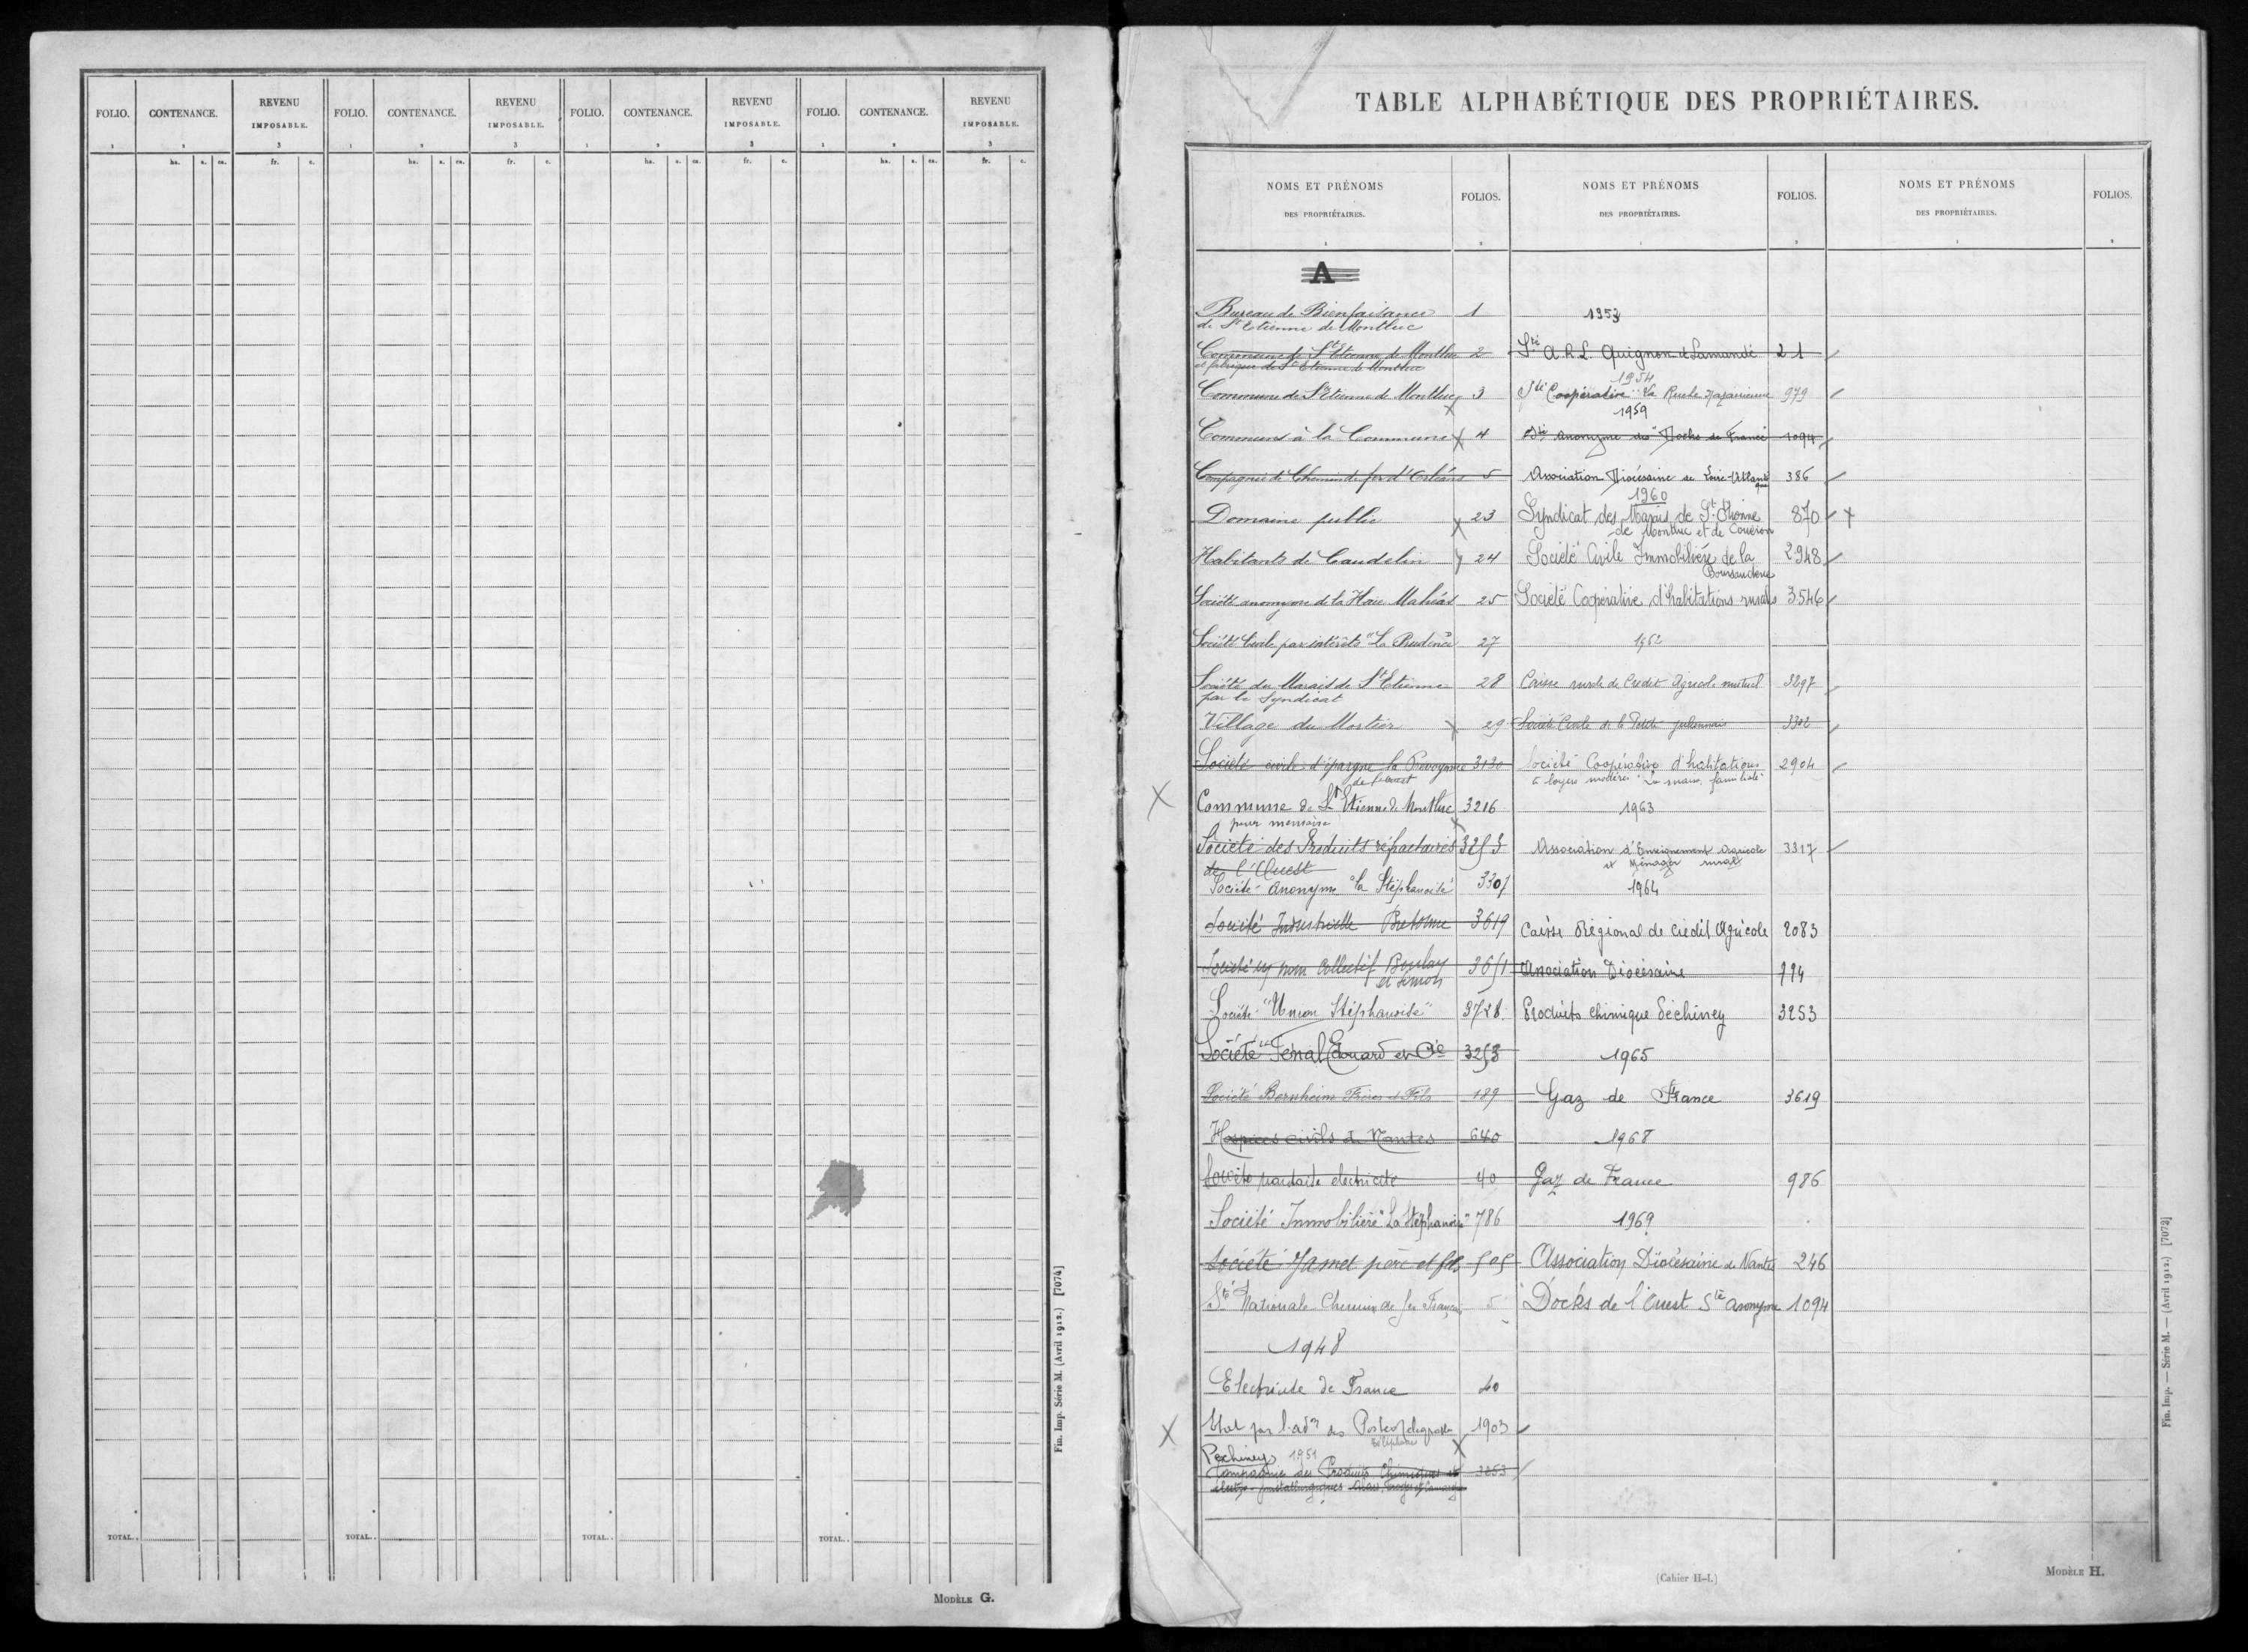 FOLIO. CONTENANCE. REVENU IMPOSABLE. FOLIO. CONTENANCE. REVENU IMPOSABLE. FOLIO. CONTENANCE. REVENU IMPOSABLE. FOLIO. CONTENANCE. REVENU IMPOSABLE.
1 2 3 1 2 3 1 2 3 1 2 3
ha. a. ca. fr. c. ha. a. ca. fr. c. ha. a. ca. fr. c. ha. a. ca. fr. c.
TOTAL.. TOTAL.. TOTAL.. TOTAL..
Fin. Imp. Série M. (Avril 1912.) [7074]
MODÈLE G.
TABLE ALPHABÉTIQUE DES PROPRIÉTAIRES.
NOMS ET PRÉNOMS DES PROPRIÉTAIRES. FOLIOS. NOMS ET PRÉNOMS DES PROPRIÉTAIRES. FOLIOS. NOMS ET PRÉNOMS DES PROPRIÉTAIRES. FOLIOS.
A
Bureau de Bienfaisance 1
de St Etienne de Montluc
Commune de St Etienne de Montluc 2
et fabrique de St Etienne de Montluc
Commune de St Etienne de Montluc 3
Communs à la Commune 4
Compagnie de Chemin de fer d'Orléans 5
Domaine public 23
Habitants de Caudelin 24
Société anonyme de la Haie Mahéas 25
Société Civile par intérêts "La Prudence" 27
Société du Marais de St Etienne 28
par le Syndicat
Village du Mortier 29
Société civile d'épargne la Prévoyance 3130
de l'Ouest
Commune de St Etienne de Montluc 3216
pour mémoire
Société des Produits réfractaires 3253
de l'Ouest
Société Anonyme "la Stéphanoise" 3307
Société Industrielle Bretonne 3619
Société en nom Collectif Boulay 3651
et Simon
Société "Union Stéphanoise" 3728
Société Fénal Edouard et Cie 3253
Société Bernheim Frères et Fils 189
Hospices civils de Nantes 640
Société nantaise electricité 40
Société Immobilière "La Stéphanoise" 786
Société Jamet père et fils 505
Sté Nationale Chemins de fer Français 5
1948
Electricité de France 40
Etat par l'adon des Postes Télégraphes 1903
Téléphone
Pechiney 1951
Compagnie des Produits Chimiques et 3253
électro-métallurgiques Alais, Froges et Camargue
1953
Sté A.R.L. Guignon et Lamandé 21
1954
Sté Coopérative "La Ruche Nazairienne 979
1959
Sté anonyme des "Docks de France" 1094
Association Diocésaine de Loire-Atlantique 386
1960
Syndicat des Marais de St Etienne 870
de Montluc et de Couëron
Société Civile Immobilière de la 2948
Boursauderie
Société Coopérative d'habitations rurales 3546
1962
Caisse rurale de Crédit Agricole mutuel 3297
Société Civile de la Petite 3302
Société Coopérative d'habitations 2904
à loyers modérés "La maison familiale"
1963
Association d'Enseignement Agricole 3317
et Ménager rural
1964
Caisse Régional de Crédit Agricole 2083
Association Diocésaine 794
Produits Chimique Péchiney 3253
1965
Gaz de France 3619
1968
Gaz de France 986
1969
Association Diocésaine de Nantes 246
Docks de l'Ouest Sté anonyme 1094
(Cahier H-I.)
MODÈLE H.
Fin. Imp. — Série M. — (Avril 1912.) [7073]